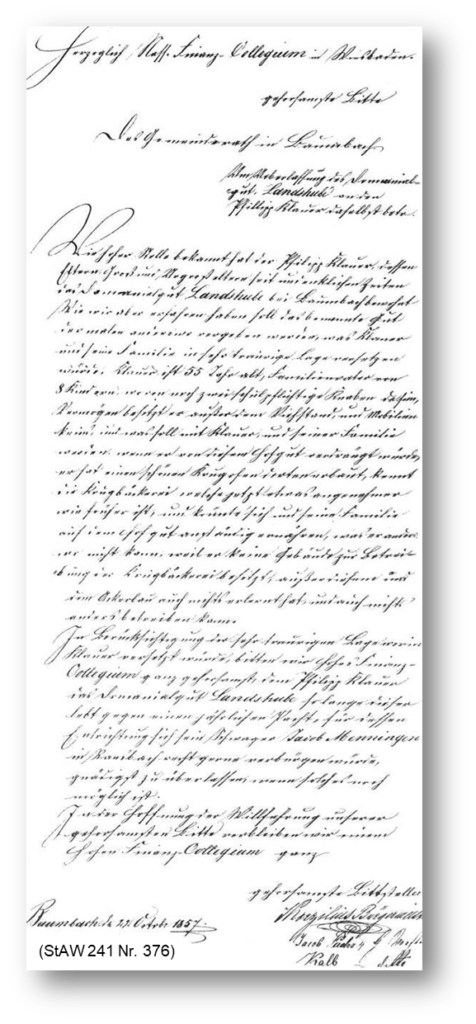 Herzoglich Nass. Finanz-Collegium in Wiesbaden.
gehorsamste Bitte
Des Gemeinderath in Baumbach
Um Ueberlassung des Domanial-
gut Landshube an den
Philipp Klauer daselbst betr.
Wie hoher Stelle bekannt hat der Philipp Klauer, dessen
Eltern, Groß und Urgroßeltern seit undenklichen Zeiten
das Domanialgut Landshube bei Baumbach bewohnt
Wie wir aber erfahren haben soll das benannte Gut
dermalen anderwärts vergeben werden, was Klauer
und seine Familie in sehr traurige Lage versetzen
würde. Klauer ist 55 Jahr alt, Familienvater von
8 Kindern, wovon noch zwei schulpflichtige Knaben da sein,
Vermögen besitzt er außer dem Viehstand und Mobilien
kein, und was soll mit Klauer, und seiner Familie
werden, wenn er von diesem Hofgut verdrängt würde,
er hat einen schönen Krugofen dorten erbaut, kennt
die Krugbäckerei welche jetzt etwas angenehmer
wie früher ist, und könnte sich und seine Familie
auf dem Hofgut anständig ernähren, was er anders
wo nicht kann, weil er keine Gebäude zur Betrei-
bung der Krugbäckerei besitzt, außer diesem und
dem Ackerbau auch nichts erlernt hat, und auch nichts
anders betreiben kann.
In Berücksichtigung der sehr traurigen Lage worin
Klauer versetzt würde, bitten wir hohes Finanz-
Collegium ganz gehorsamst, dem Philipp Klauer
das Domanialgut Landshube so lange dieser
lebt gegen einen jährlichen Pacht, für dessen
Entrichtung sich sein Schwager Jacob Menningen
in Ransbach recht gerne verbürgen würde,
gnädigst zu überlassen, wenn solches noch
möglich ist.
In der Hoffnung der Willfahrung unserer
gehorsamsten Bitte verbleiben wir einem
Hohen Finanz-Collegium ganz
gehorsamste Bittsteller
Baumbach d. 27. Octobr 1857.
Jacob Fuchs
Kalb
(StAW 241 Nr. 376)